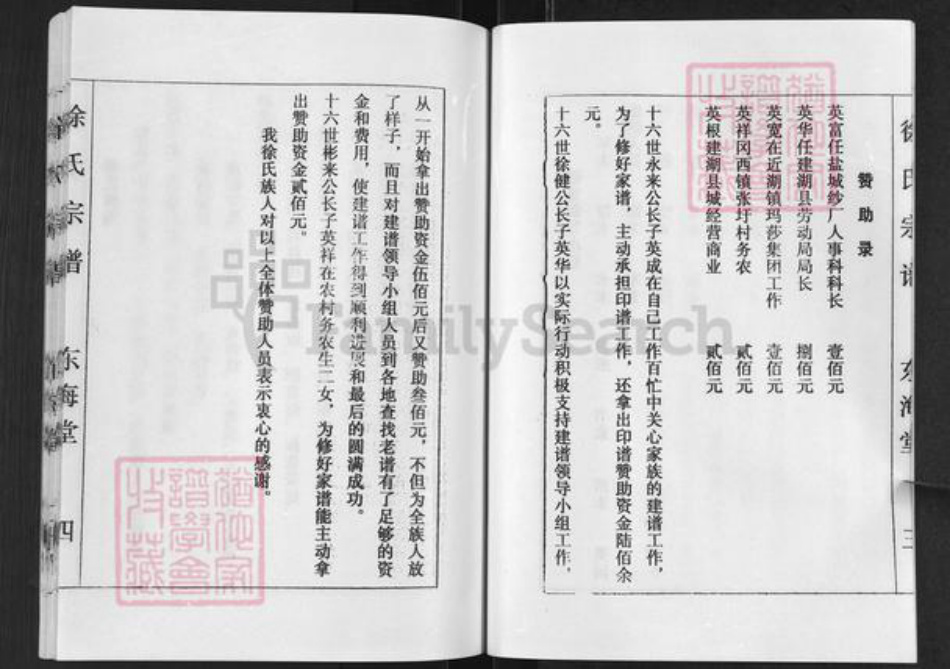 徐氏宗谱 东海堂 三
赞助录
英富任盐城纱厂人事科科长 壹佰元
英华任建湖县劳动局局长 捌佰元
英宽在近湖镇玛莎集团工作 壹佰元
英祥冈西镇张圩村务农 贰佰元
英根建湖县城经营商业 贰佰元
十六世永来公长子英成在自己工作百忙中关心家族的建谱工作,
为了修好家谱,主动承担印谱工作,还拿出印谱赞助资金陆佰余
元。
十六世徐健公长子英华以实际行动积极支持建谱领导小组工作,
从一开始拿出赞助资金伍佰元后又赞助叁佰元,不但为全族人放
了样子,而且对建谱领导小组人员到各地查找老谱有了足够的资
金和费用,使建谱工作得到顺利进展和最后的圆满成功。
十六世彬来公长子英祥在农村务农生二女,为修好家谱能主动拿
出赞助资金贰佰元。
我徐氏族人对以上全体赞助人员表示衷心的感谢。
徐氏宗谱 东海堂 四
FamilySearch